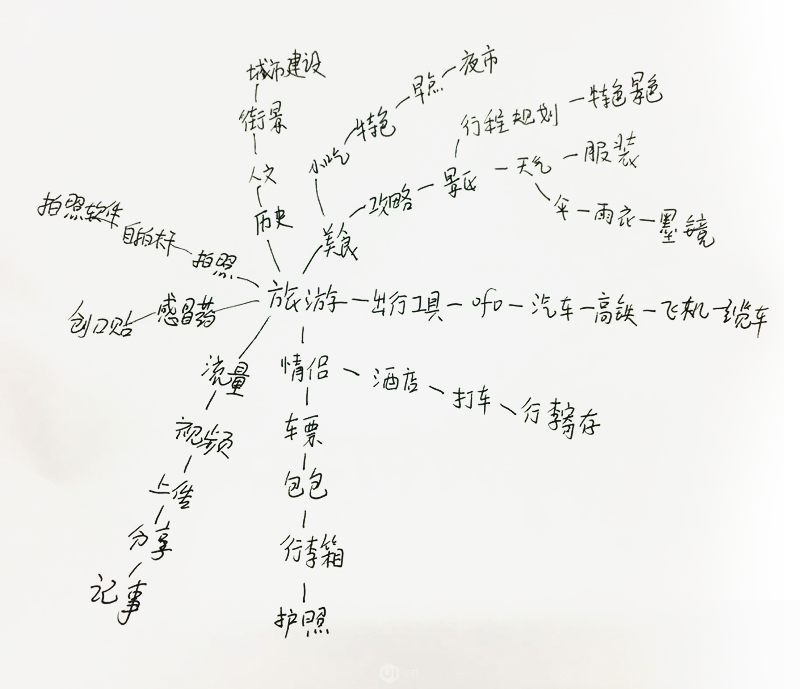 城市建设
街景
人文
历史
小吃
特色
早点
夜市
美食
攻略
景区
行程规划
特色景色
天气
服装
伞
雨衣
墨镜
拍照软件
自拍杆
拍照
创口贴
感冒药
旅游
出行工具
ofo
汽车
高铁
飞机
缆车
流量
视频
上传
分享
记事
情侣
酒店
打车
行李寄存
车票
包包
行李箱
护照